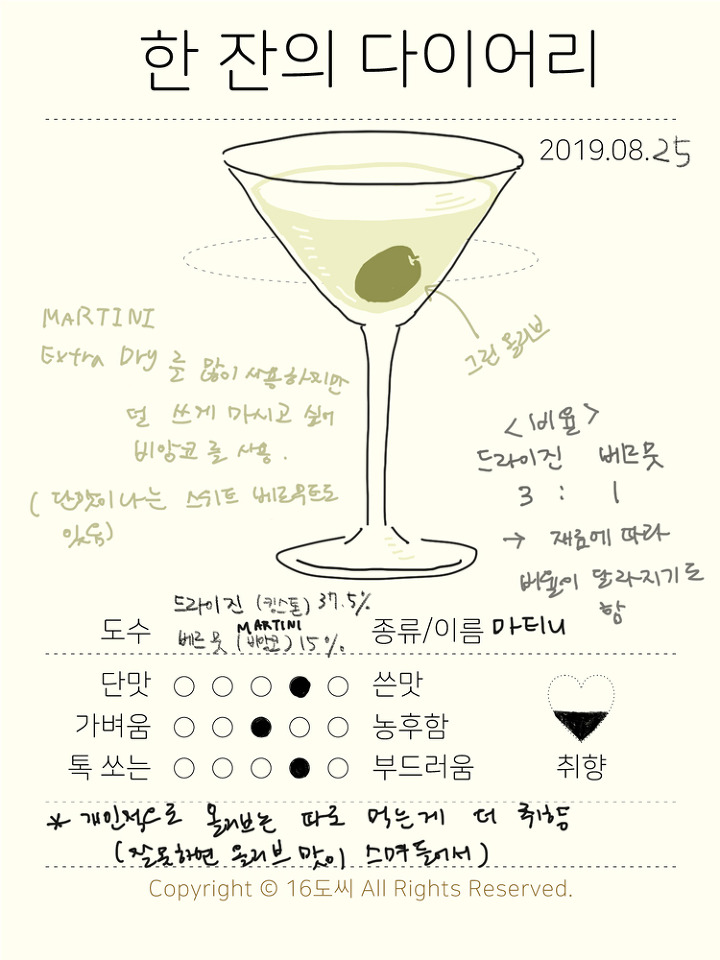 한 잔의 다이어리
2019.08.25
MARTINI
Extra Dry 를 많이 사용하지만
덜 쓰게 마시고 싶어
비앙코를 사용.
(단맛이 나는 스위트 베르무트도
있음)
그린 올리브
<비율>
드라이진 베르뭇
3 : 1
→ 재료에 따라
비율이 달라지기도
함
도수
드라이진 (킹스톤) 37.5%
베르뭇 (MARTINI 비앙코) 15%
종류/이름 마티니
단맛 쓴맛
가벼움 농후함
톡 쏘는 부드러움
취향
* 개인적으로 올리브는 따로 먹는게 더 취향
(잘못하면 올리브 맛이 스며들어서)
Copyright © 16도씨 All Rights Reserved.